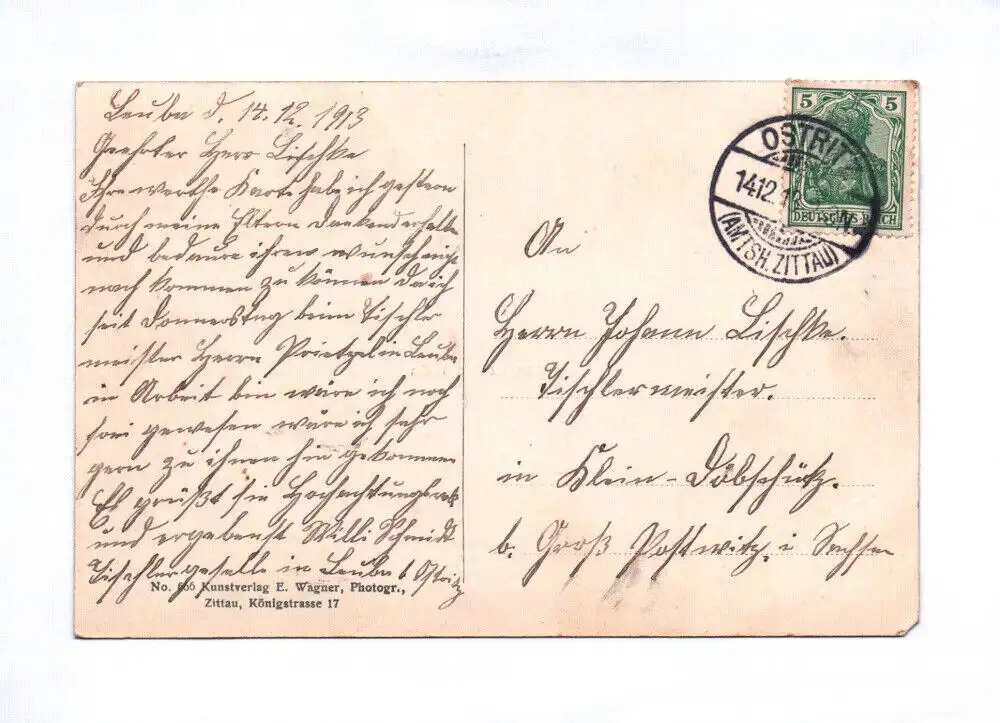 Leuba d. 14.12.1913
Geehrter Herr Lischke
Ihre werthe Karte hab ich gestern
durch meine Eltern Dankend erhalten
und bedaure ihren wunsch nicht
nach kommen zu können da ich
seit Donnerstag beim Tischler
meister Herrn Prietzel in Leuba
in Arbeit bin wäre ich noch
frei gewesen wäre ich sehr
gern zu ihnen hin gekommen
Es grüßt sie Hochachtungsvoll
und ergebenst Willi Schmidt
Tischlergeselle in Leuba b Ostritz
No. 666 Kunstverlag E. Wagner, Photogr.,
Zittau, Königstrasse 17
5 5
DEUTSCHES REICH
OSTRITZ
14.12.1
(AMTSH. ZITTAU)
An
Herrn Johann Lischke.
Tischlermeister.
in Klein-Döbschütz.
b. Groß Postwitz. i Sachsen